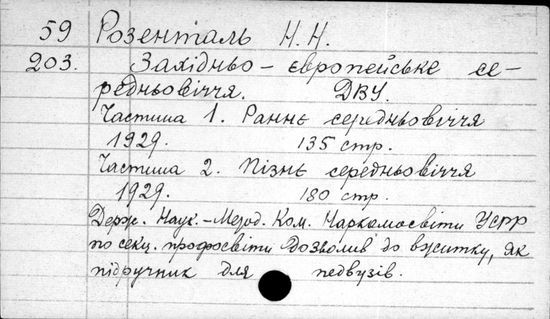 59 Розенталь Н. Н.
203. Західньо – європейське се-
редньовіччя. ДВУ.
Частина 1. Раннє середньовіччя
1929. 135 стр.
Частина 2. Пізнє середньовіччя
1929. 180 стр.
Держ. Наук.-Метод. Ком. Наркомосвіти УСРР
по секц. профосвіти дозволив до вжитку, як
підручник для педвузів.